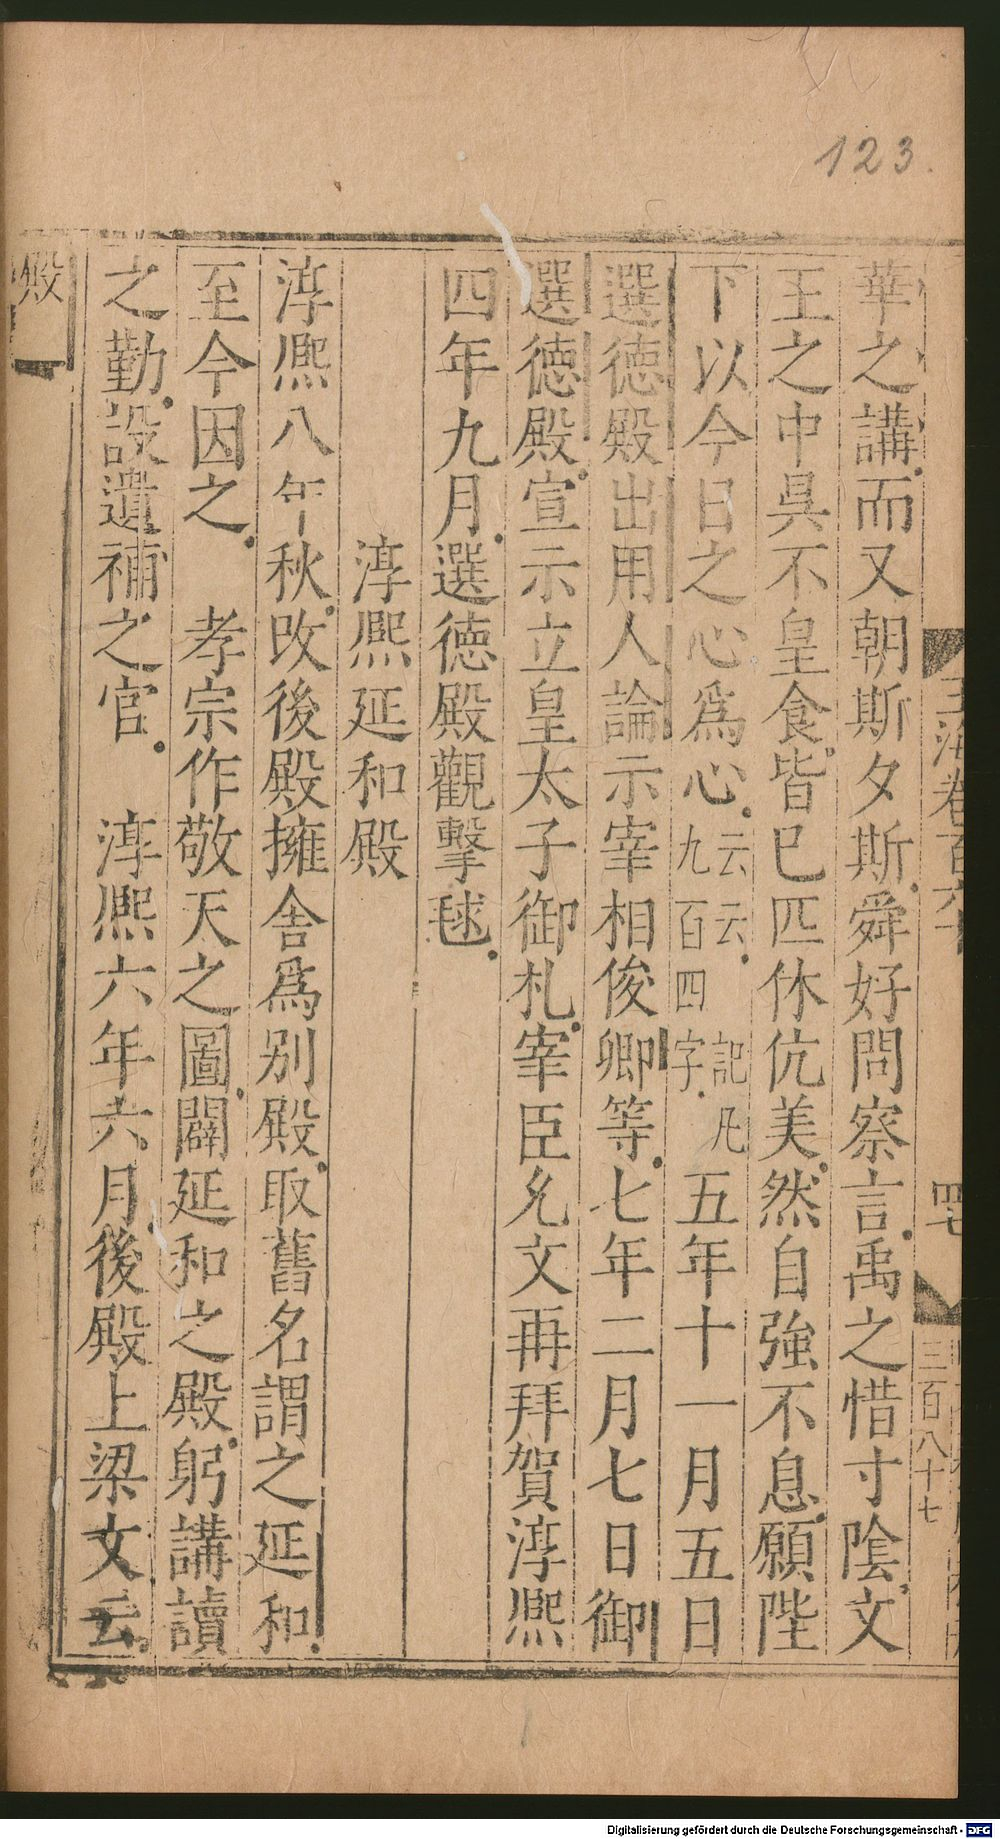 123.
玉海卷百六十
四七
三百八十七
華之講而又朝斯夕斯舜好問察言禹之惜寸陰文
王之中昃不皇食皆已匹休伉美然自強不息願陛
下以今日之心爲心云云記凡九百四字五年十一月五日
選德殿出用人論示宰相俊卿等七年二月七日御
選德殿宣示立皇太子御札宰臣允文再拜賀淳熙
四年九月選德殿觀擊毬
淳熙延和殿
淳熙八年秋改後殿擁舍爲別殿取舊名謂之延和
至今因之 孝宗作敬天之圖闢延和之殿躬講讀
之勤設遺補之官 淳熙六年六月後殿上梁文云
殿
Digitalisierung gefördert durch die Deutsche Forschungsgemeinschaft - DFG